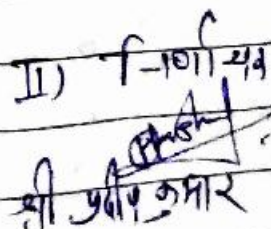 II) निर्णायक
श्री प्रदीप कुमार